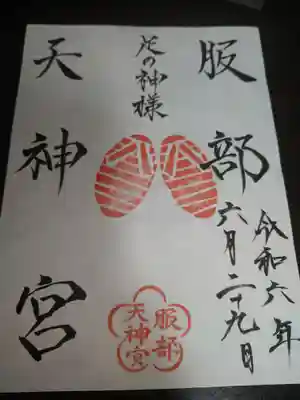 服部
天神宮
足の神様
令和六年
六月二十九日
服部
天神宮